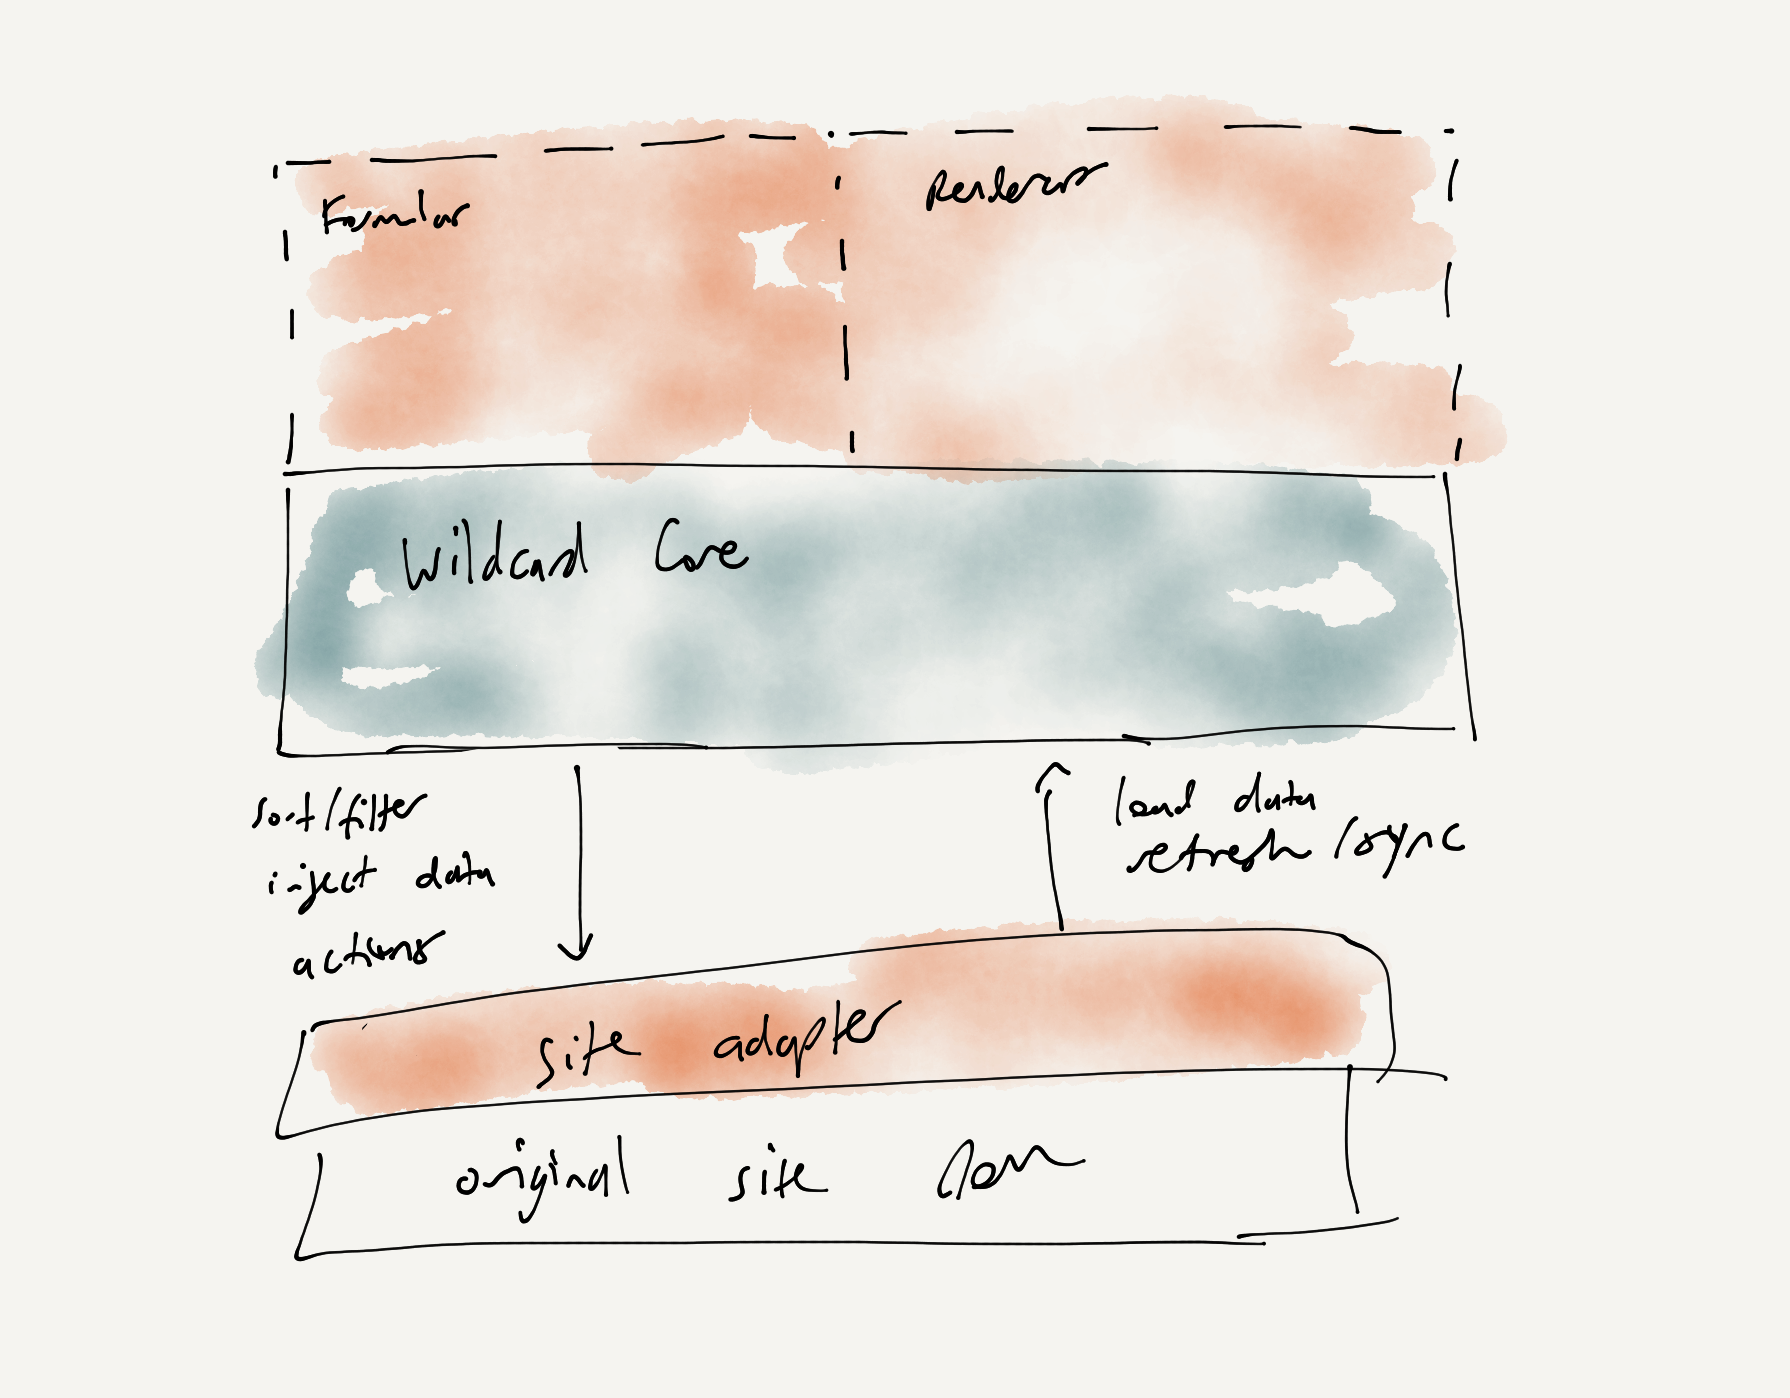 Formulas
Renderers
Wildcard Core
sort/filter
inject data
actions
load data
refresh/sync
site adapter
original site dom